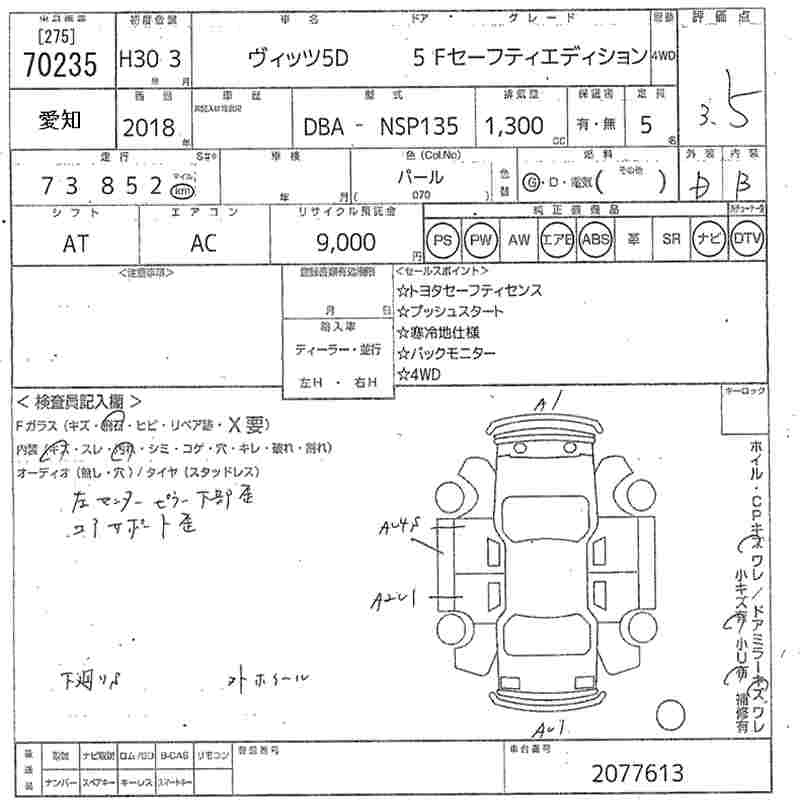 [275]
70235
初度登録
H30 3
年 月
車名
ヴィッツ5D
ドア・グレード
5 Fセーフティエディション
4WD
評価点
3.5
愛知
2018
年
車歴
型式
DBA - NSP135
排気量
1,300
CC
有・無
定員
5
名
走行
73 852
マイル
km
車検
年 月
色(Col.No)
パール
( 070 )
色替
燃料
G・D・電気( その他 )
外装
D
内装
B
シフト
AT
エアコン
AC
リサイクル預託金
9,000
円
純正装備品
PS
PW
AW
エアB
ABS
革
SR
ナビ
DTV
<注意事項>
月 日
輸入車
ディーラー・並行
左H ・ 右H
<セールスポイント>
☆トヨタセーフティセンス
☆プッシュスタート
☆寒冷地仕様
☆バックモニター
☆4WD
キーロック
< 検査員記入欄 >
Fガラス (キズ・飛石・ヒビ・リペア跡・X要)
内装 (キズ・スレ・汚れ・シミ・コゲ・穴・キレ・破れ・割れ)
オーディオ (無し・穴) / タイヤ (スタッドレス)
左センターピラー下部歪
コアサポート歪
A1
AU4S
A2U1
AU1
下廻りS
外ホイール
ホイル・CPキズ ワレ / ドアミラーキズ ワレ
小キズ有 / 小U有 補修有
返送品
取説
ナビ取説
ロム/CD
B-CAS
リモコン
ナンバー
スペアキー
キーレス
スマートキー
登録番号
車台番号
2077613